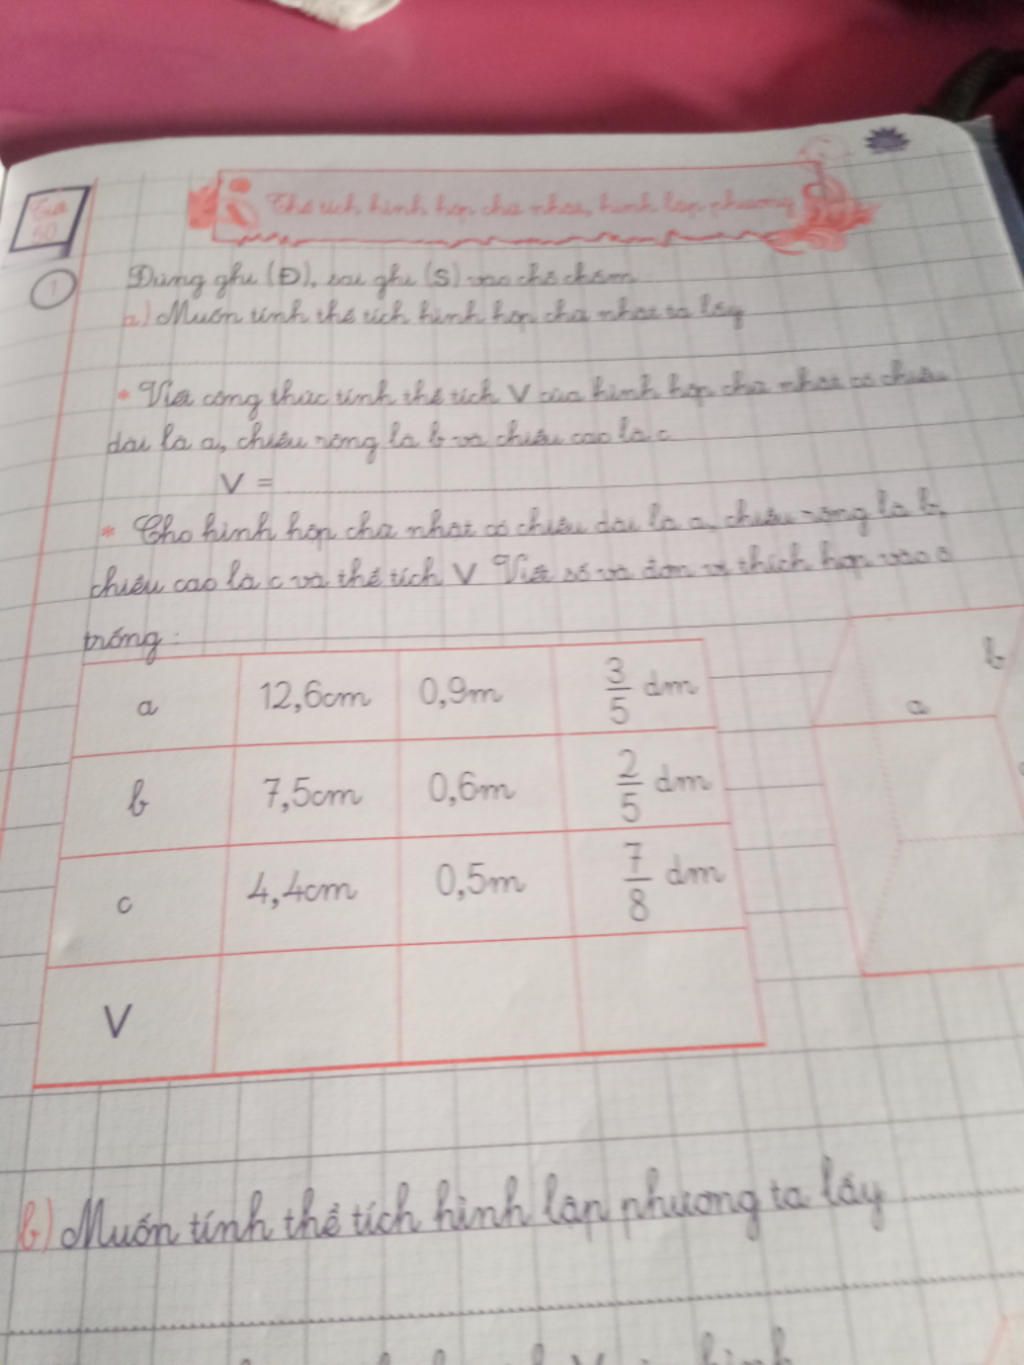 Thể tích hình hộp chữ nhật, hình lập phương
1
Đúng ghi (Đ), sai ghi (S) vào chỗ chấm
a) Muốn tính thể tích hình hộp chữ nhật ta lấy
* Viết công thức tính thể tích V của hình hộp chữ nhật có chiều
dài là a, chiều rộng là b và chiều cao là c
V =
* Cho hình hộp chữ nhật có chiều dài là a, chiều rộng là b,
chiều cao là c và thể tích V Viết số và đơn vị thích hợp vào ô
trống :
a 12,6cm 0,9m 3/5 dm
b 7,5cm 0,6m 2/5 dm
c 4,4cm 0,5m 7/8 dm
V
b
a
b) Muốn tính thể tích hình lập phương ta lấy